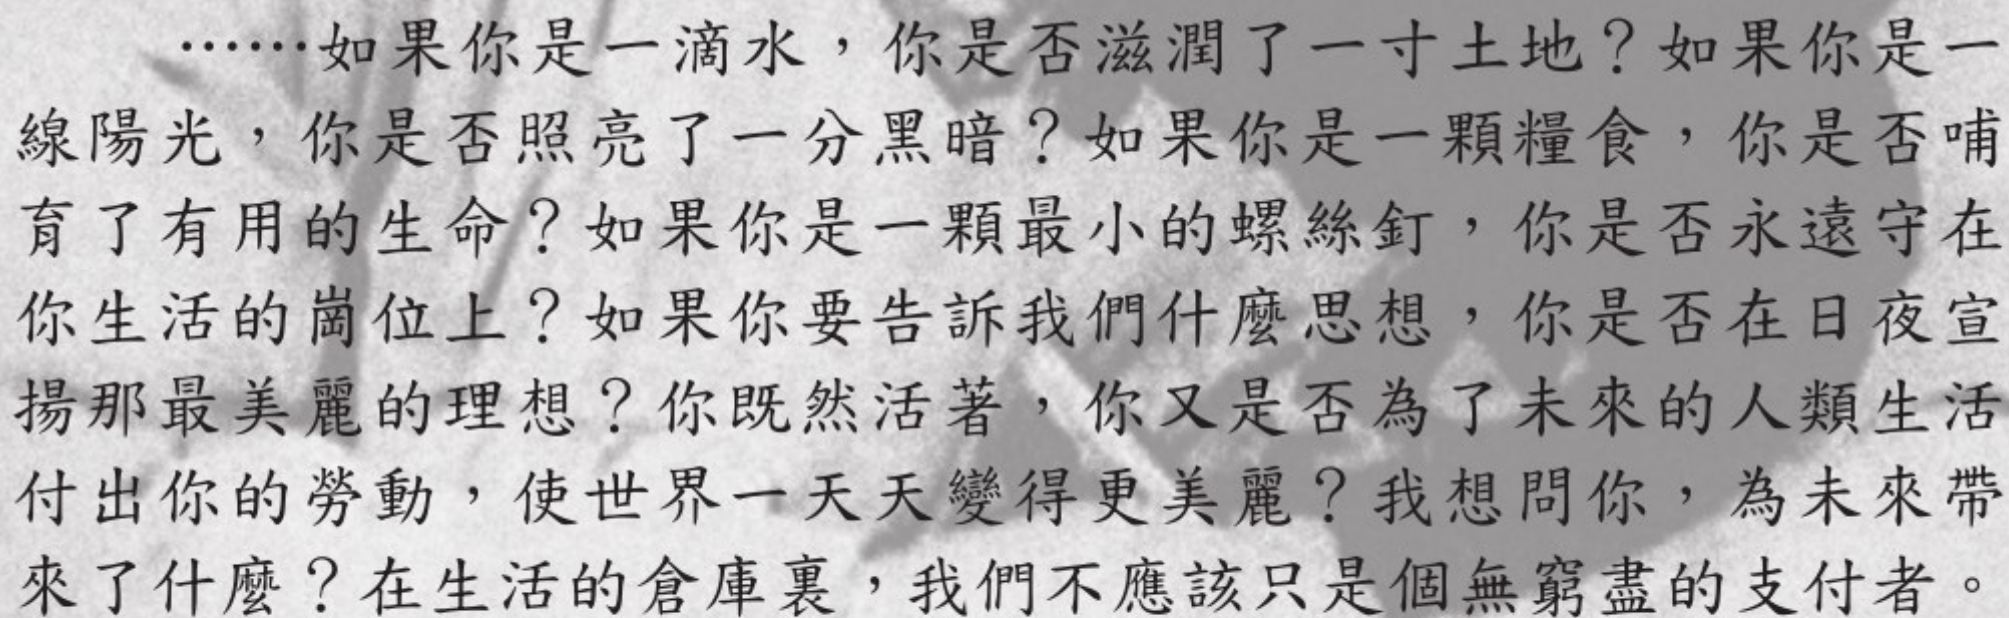 ……如果你是一滴水，你是否滋潤了一寸土地？如果你是一
線陽光，你是否照亮了一分黑暗？如果你是一顆糧食，你是否哺
育了有用的生命？如果你是一顆最小的螺絲釘，你是否永遠守在
你生活的崗位上？如果你要告訴我們什麼思想，你是否在日夜宣
揚那最美麗的理想？你既然活著，你又是否為了未來的人類生活
付出你的勞動，使世界一天天變得更美麗？我想問你，為未來帶
來了什麼？在生活的倉庫裏，我們不應該只是個無窮盡的支付者。